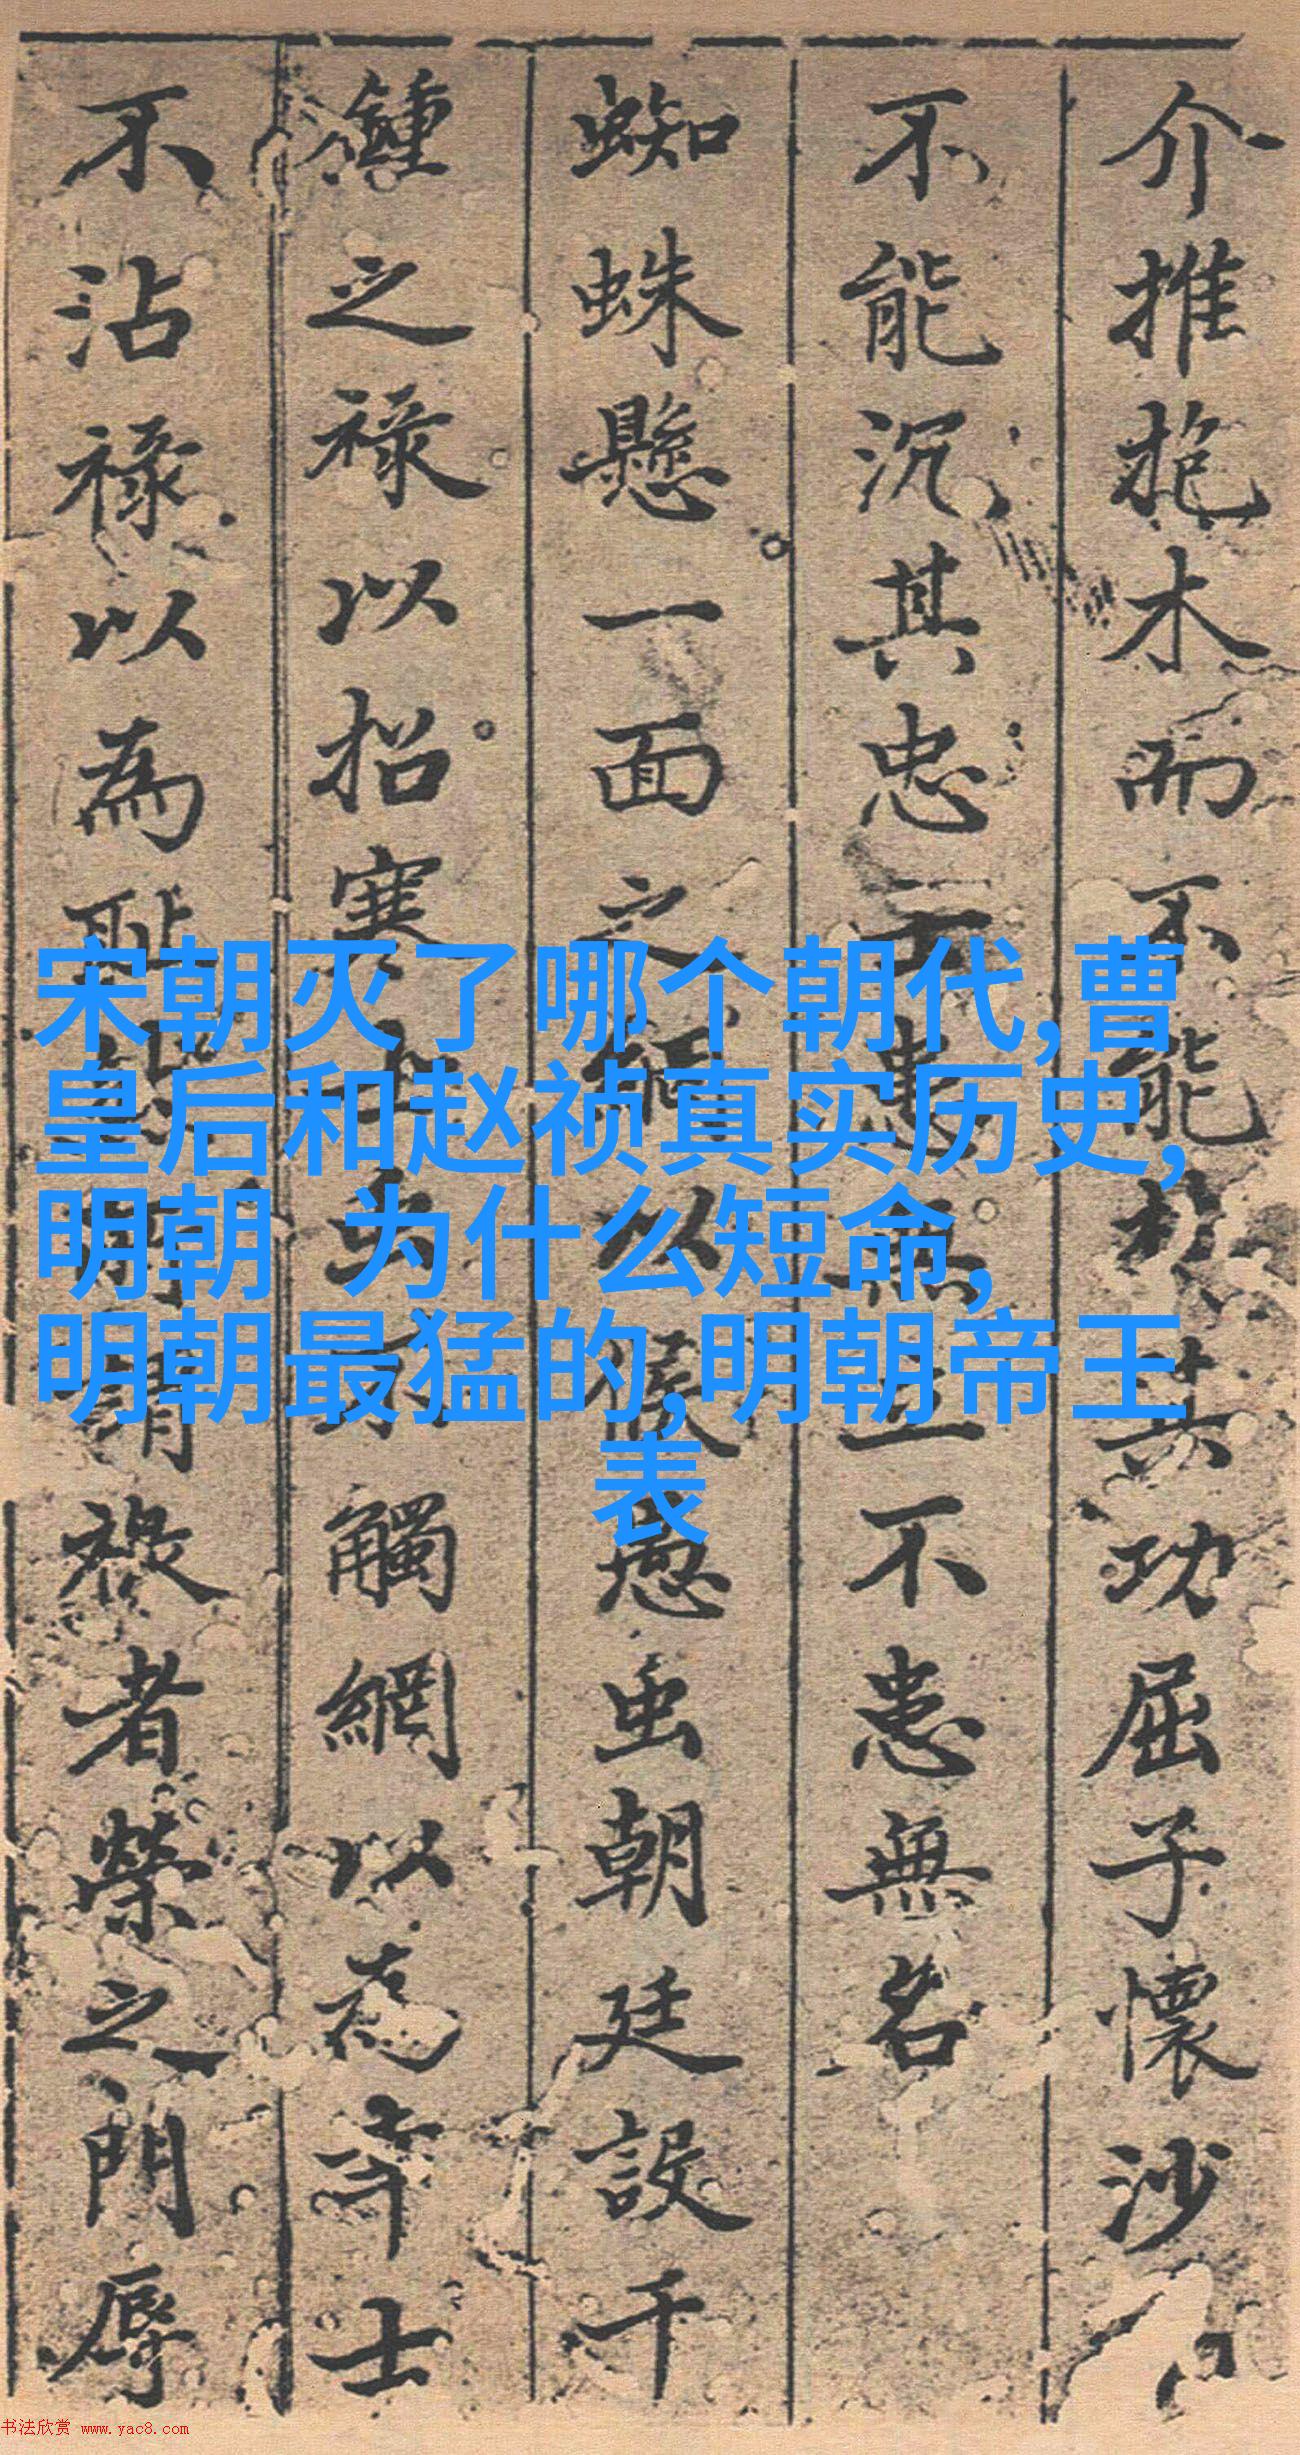 介推抱木而不能其功屈子懷沙
不能沉其忠不患無立不患無名
蜘蛛懸一面之網以候虫朝廷設千
鍾之禄以招寒士虫以觸網以為士
不沾禄以為恥謂禄者榮之門辱
宋朝灭了哪个朝代,曹
皇后和赵祯真实历史,
明朝 为什么短命,
明朝最猛的,明朝帝王
表
书法欣赏 www.yac8.com